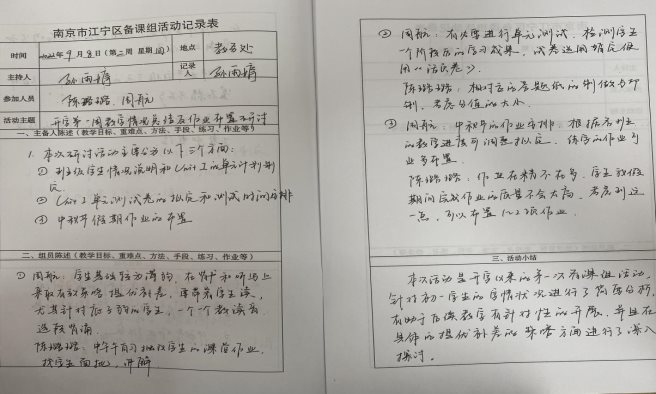 南京市江宁区备课组活动记录表
时间 2022年9月8日(第二周 星期四) 地点 教务处
主持人 孙雨婧 记录人 孙雨婧
参加人员 陈璐璐、周航
活动主题 开学第一周教学情况总结及作业布置研讨
一、主备人陈述(教学目标、重难点、方法、手段、练习、作业等)
1. 本次研讨活动主要分为以下三个方面:
① 班级学生情况说明和Unit 1的单元计划制定
② Unit 1单元测试卷的拟定和测试时间安排
③ 中秋节假期作业的布置
二、组员陈述(教学目标、重难点、方法、手段、练习、作业等)
① 周航:学生基础较为薄弱,在背和听写上
采取有效策略 提优补差,带着学生读,
尤其针对后面的学生,一个个教读
逐段背诵
陈璐璐:中午午自习批改学生的课堂作业,
找学生面批,讲解
② 周航:有必要进行单元测试,检测学生
一个阶段后的学习效果,试卷选用
用《活页卷》。
陈璐璐:相对应的答题纸的制作与印
制,考虑分值的大小
③ 周航:中秋节的作业安排,根据各班
的教学进度可调整拟定,练字的作业可
业多布置
陈璐璐:作业在精不在多,学生放假
期间完成作业的质量不会太高,考虑到这
一点,可以布置1~2张作业
三、活动小结
本次活动是开学以来的第一次备课组活动,
针对初一学生的学情状况进行了简要分析,
有助于后续教学有针对性的开展,并且在
具体的提优补差的策略方面进行了深入
探讨。